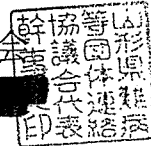 山形県難病
等団体連絡
協議会代表
幹事
印